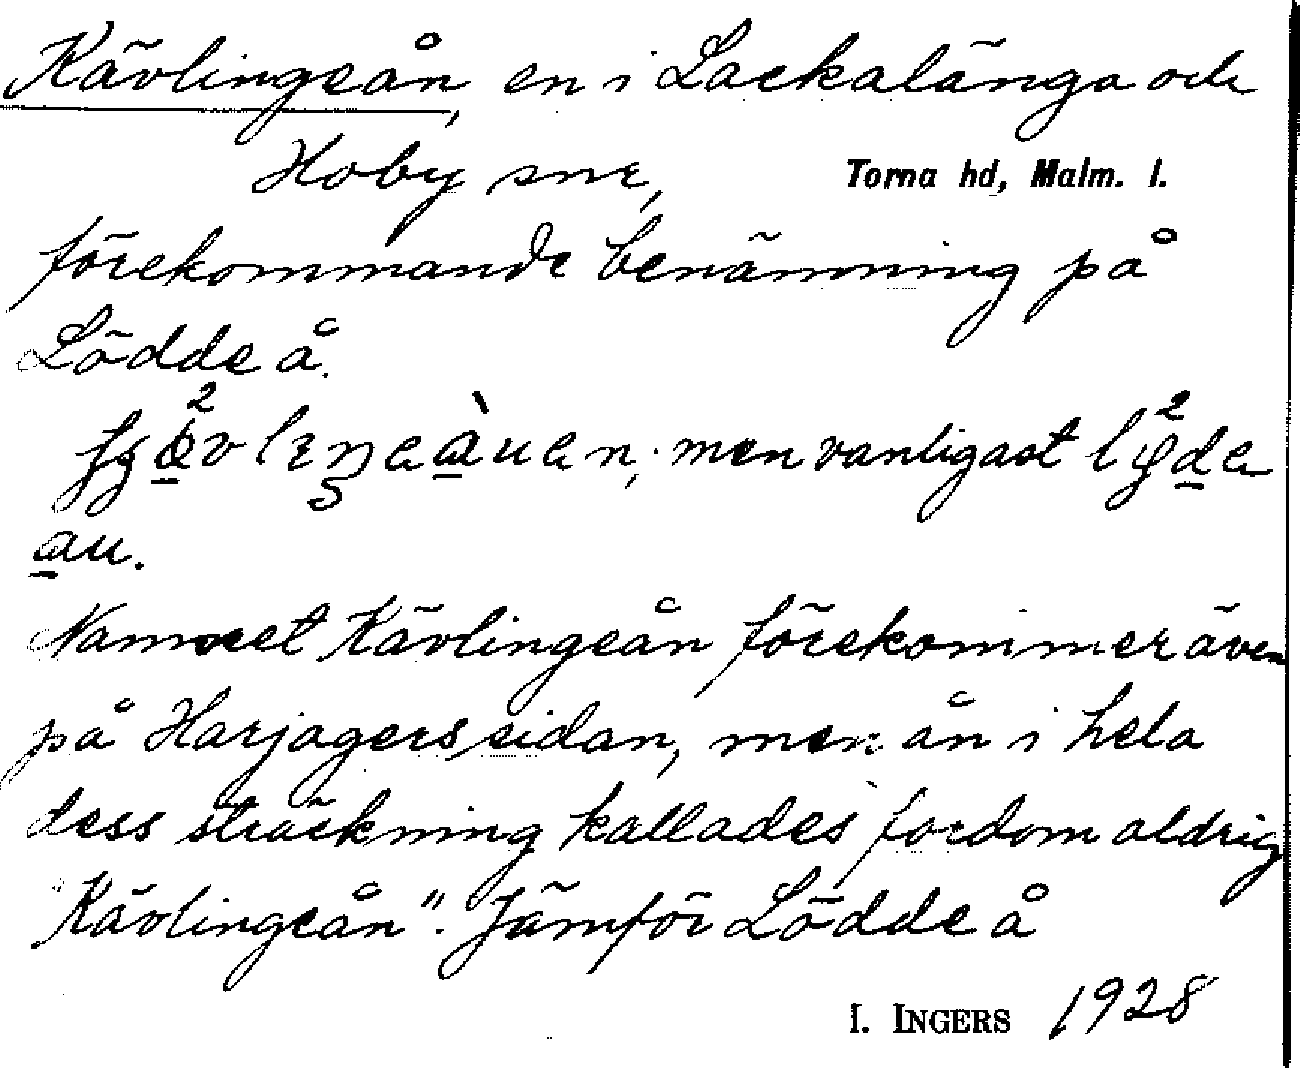 Kävlingeån, en i Lackalänga och
Hoby snr, Torna hd, Malm. l.
förekommande benämning på
Lödde å.
men vanligast
au.
Namnet Kävlingeån förekommer även
på Harjagerssidan, men ån i hela
dess sträckning kallades fordom aldrig
"Kävlingeån". Jämför Lödde å
I. INGERS 1928